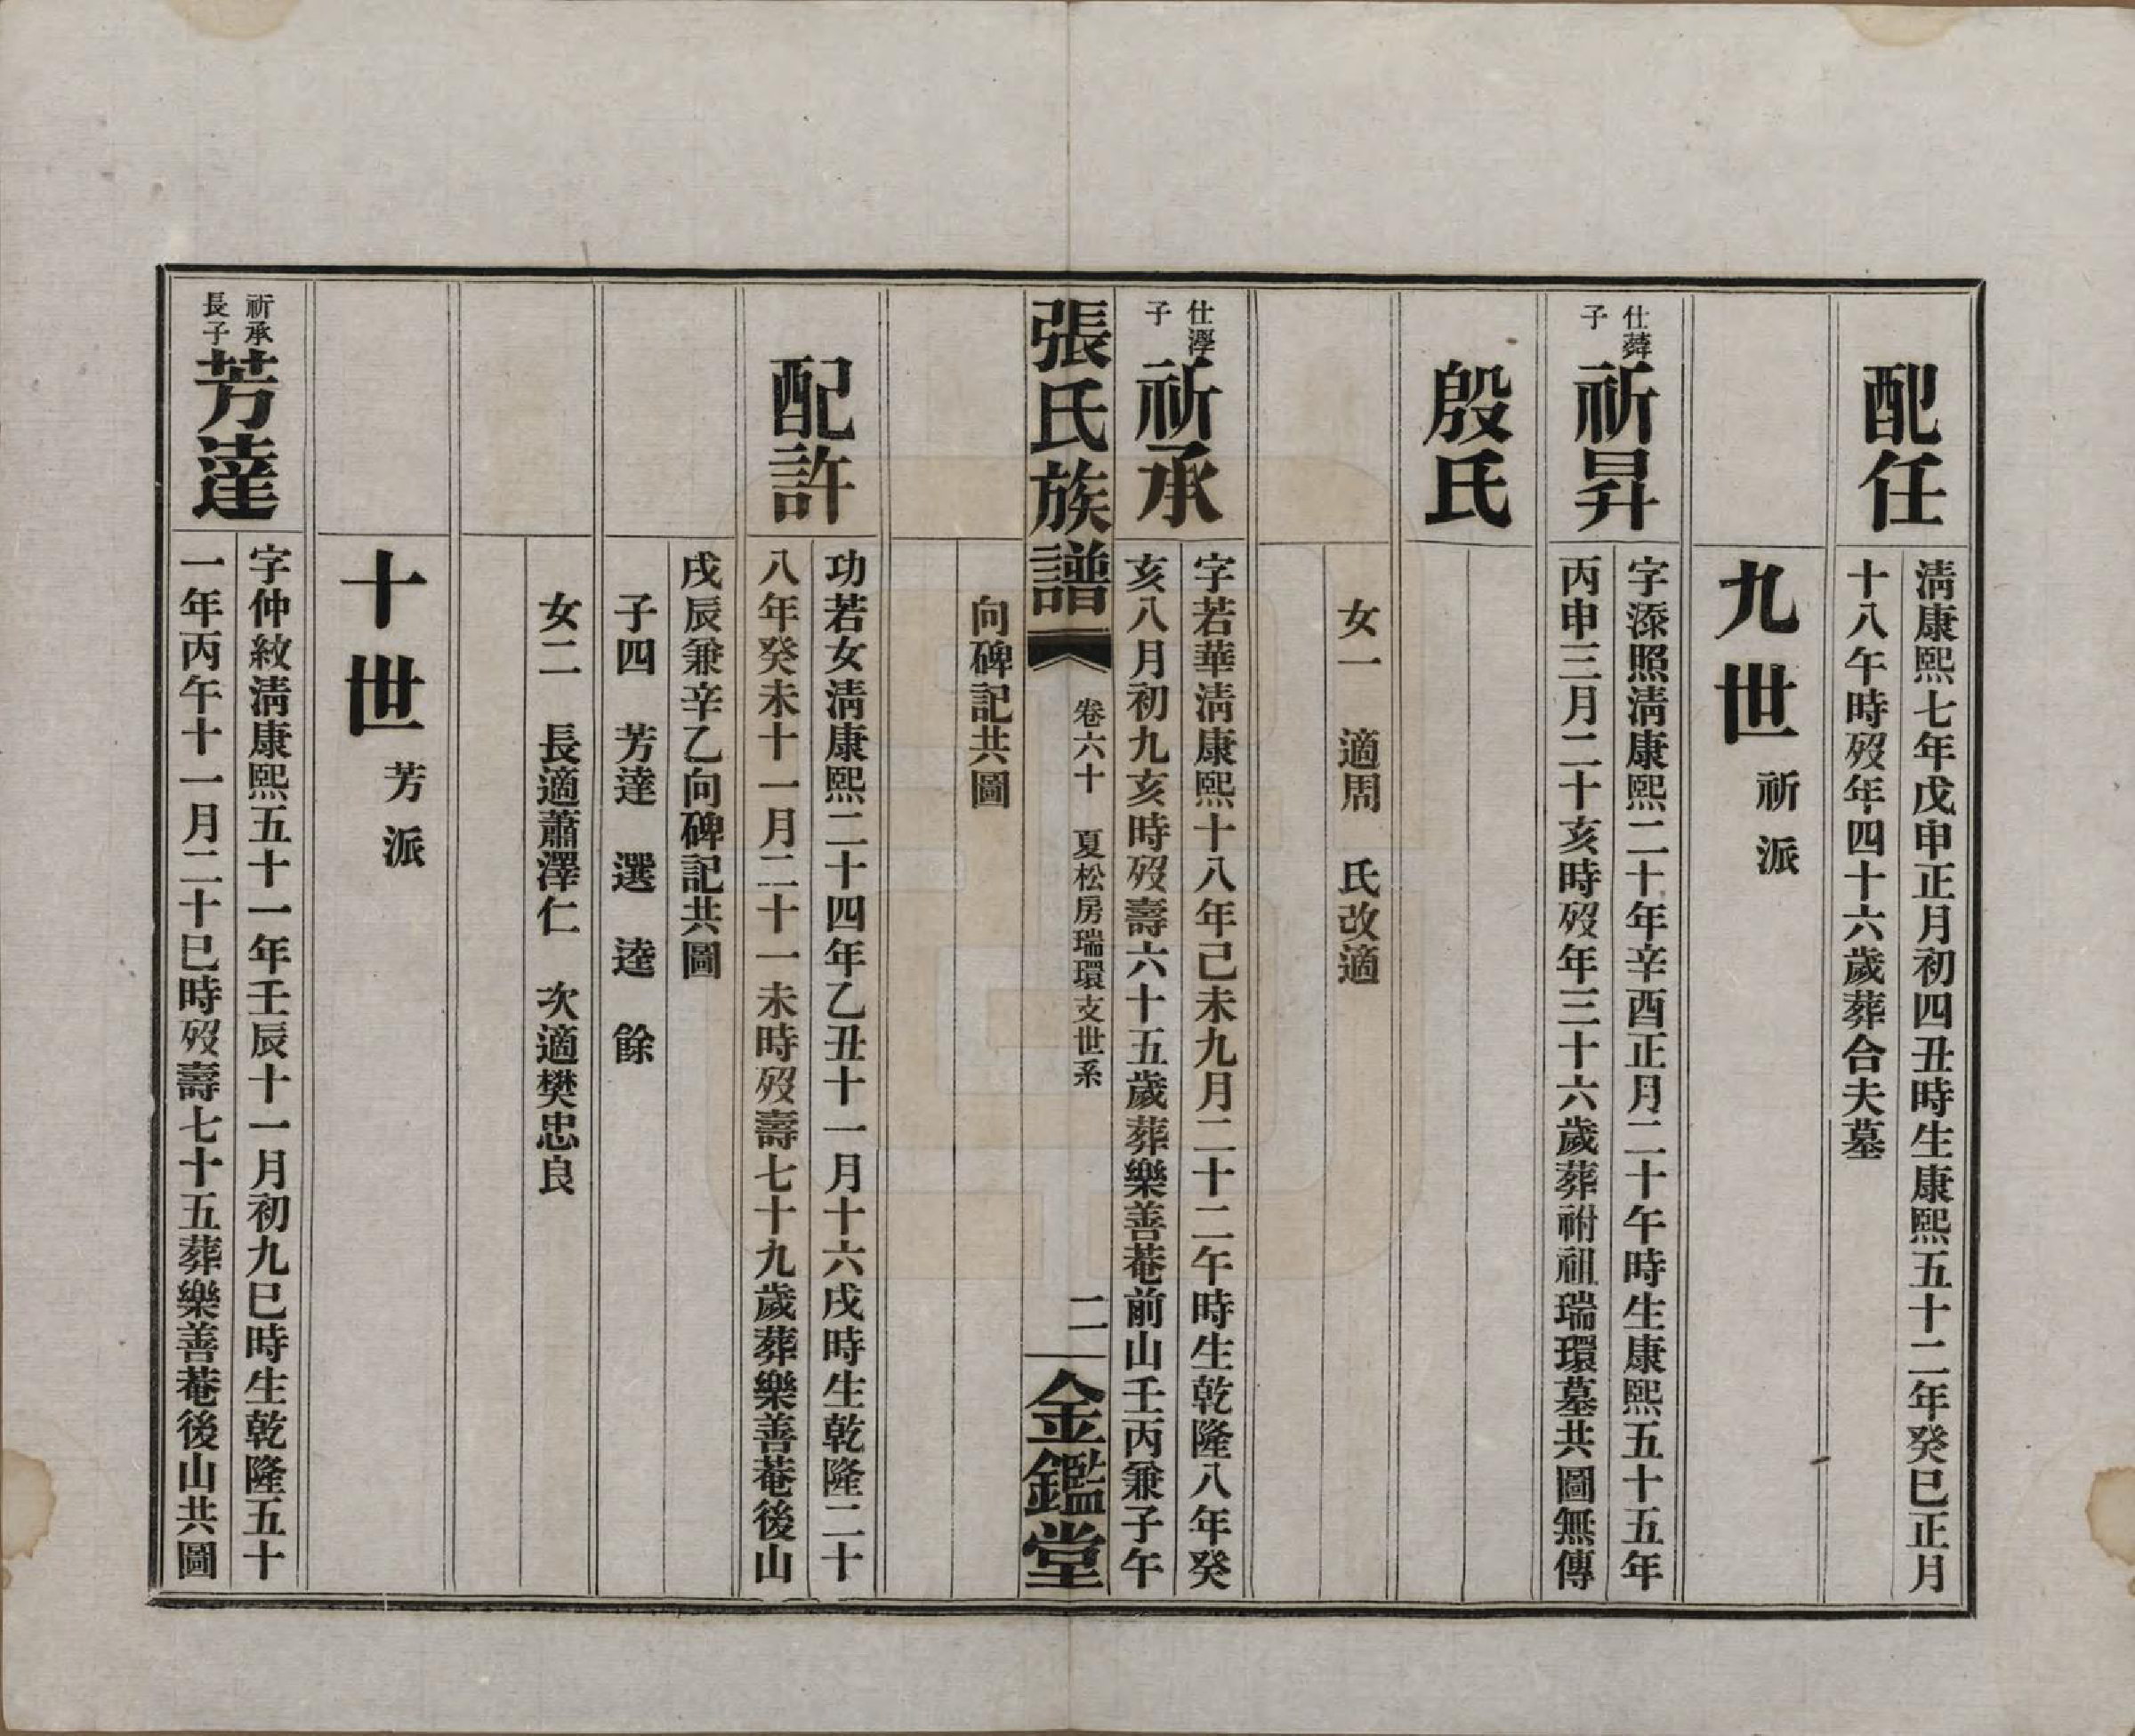 配任
清康熙七年戊申正月初四丑時生康熙五十二年癸巳正月
十八午時歿年四十六歲葬合夫墓
九世 祈派
仕薿
子
祈昇
字添照清康熙二十年辛酉正月二十午時生康熙五十五年
丙申三月二十亥時歿年三十六歲葬祔祖瑞環墓共圖無傳
殷氏
女一 適周 氏改適
仕澤
子
祈承
字若華清康熙十八年己未九月二十二午時生乾隆八年癸
亥八月初九亥時歿壽六十五歲葬樂善菴前山壬丙兼子午
張氏族譜
卷六十 夏松房瑞環支世系
二
金鑑堂
向碑記共圖
配許
功若女清康熙二十四年乙丑十一月十六戌時生乾隆二十
八年癸未十一月二十一未時歿壽七十九歲葬樂善菴後山
戌辰兼辛乙向碑記共圖
子四 芳達 選 逵 餘
女二 長適蕭澤仁 次適樊忠良
十世 芳派
祈承
長子
芳達
字仲紋清康熙五十一年壬辰十一月初九巳時生乾隆五十
一年丙午十一月二十巳時歿壽七十五葬樂善菴後山共圖